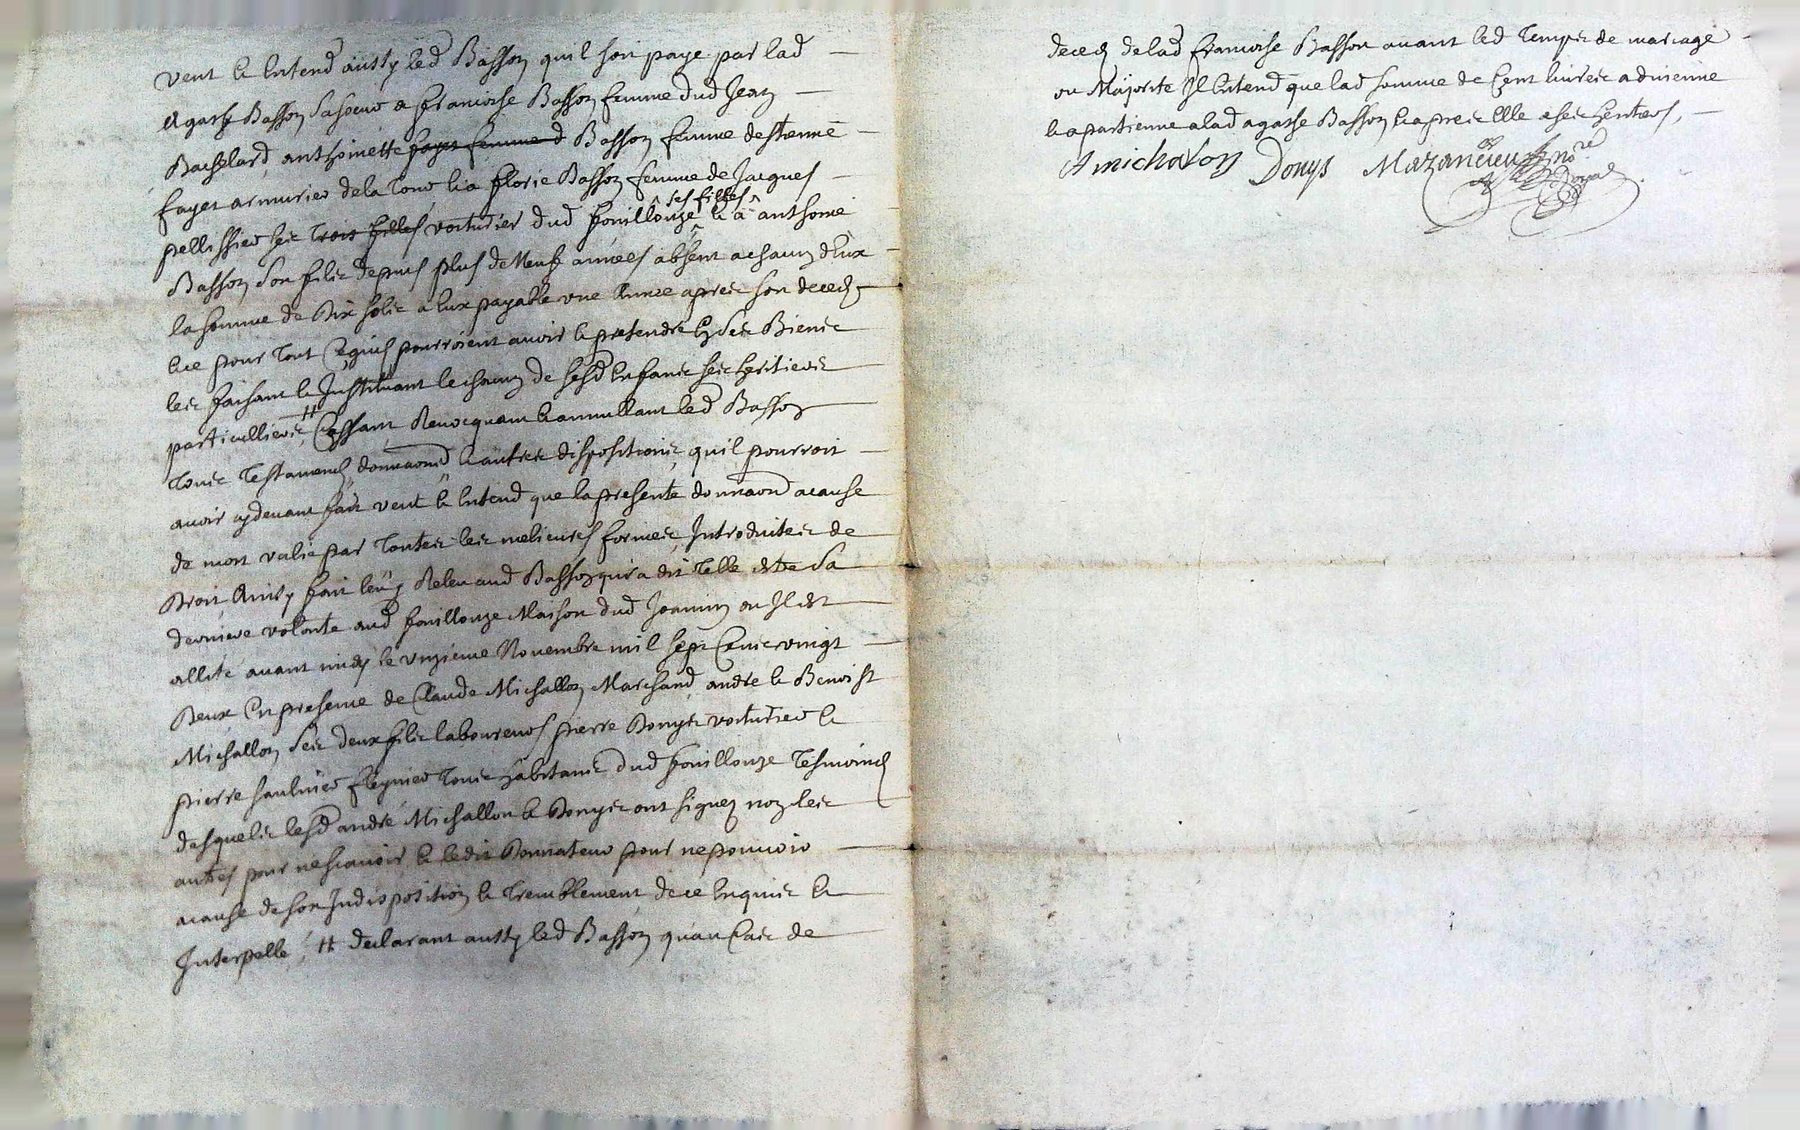 veut & Entend aussy led Basson quil soit paye par lad
Agathe Basson sa soeur a francoise Basson femme dud Jean
Bachelard, anthoinette fayet femme d Basson femme destienne
fayet armurier de la Tour & a florie Basson femme de Jacques
pellissier ses trois filles voiturier dud fouillouze ses filles & a anthoine
Basson son fils depuis plus de Neuf années absent a chacun d'Eux
la somme de Dix sols a Eux payable une Année apres son deces
& ce pour tout Cequils pourroient avoir & pretendre En ses Biens
les faisant & Instituant le chacun de sesd Enfans ses heritiers
particulliers, # Cassant Revocquant & annullant led Basson
Tous Testaments donnaond & autres dispositions, quil pourroit
avoir cydevant fait veut & Entend que la presente donnaond acause
de mort valie par toutes les melieures formes Introduites de
Droit Ainsy fait leu & Releu aud Basson qui a dit telle Estre sa
derniere volonte aud fouillouze Maison dud Joannin ou Il Est
allité avant midy le unzieme Novembre mil sept Cents vingt
Deux En presence de Claude Michallon Marchand, andré & Benoist
Michallon ses deux fils laboureurs pierre Donys voiturier &
pierre saulnier tous habitants dud fouillouze Tesmoins
desquels lesd andré Michallon & Donys ont signez non les
autres pour ne scavoir & ledit Donnateur pour ne pouvoir
acause de son Indisposition & tremblement de ce Enquis &
Interpelle, # declarant aussy led Basson quau Cas de
deces de lad francoise Basson avant led Temps de mariage
ou Majorite Il Entend que lad somme de Cent livres advienne
& apartienne a lad agathe Basson & apres Elle a ses heritiers,
A michalon Donys Mazancieu nore Royal